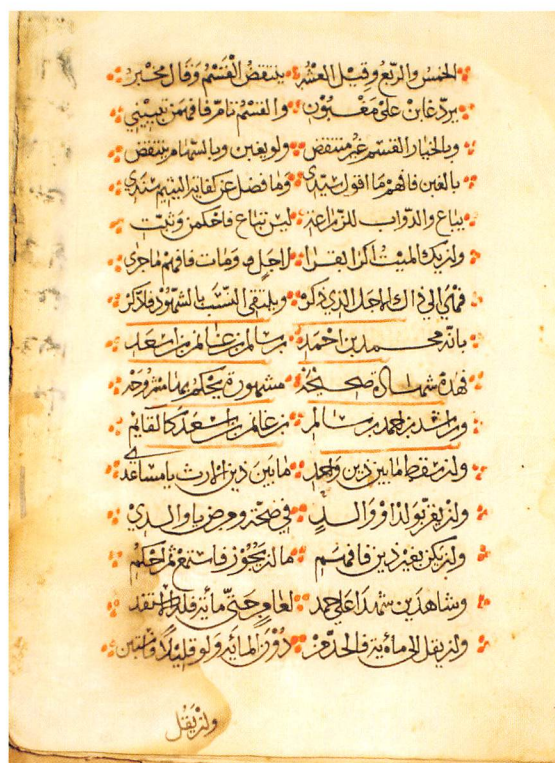 الخمس والربع وقيل العشر ينتقض القسم وقال مخبر
يرد غابن على مغبون والقسم تام فافهمن تبييني
وبالخيار القسم غير منتقض ولو بغبن وبالسهام ينتقض
بالغبن فافهم ما اقول سيدي وما فضل عن كفاية اليتيم
يباع والدواب للزراعة ليس تباع فاحكمن وثبت
ولن يك الميت اكرا لاجل ومات فافهم ما جرى
الى ذاك الاجل الذي ذكر ويلتقى النسب بالشهود فاذكر
بانه محمد بن احمد بن سالم بن غانم بن اسعد
فهذه شهادة صحيحة مشهورة يحكم
وراشد بن احمد بن سالم بن غانم بن اسعد كالقايم
ولن يقط ما بين دين واحد ما بين دين الارث يا مساعد
ولن يقر بولد او والد في صحة ومرض يا والدي
ولن يكن بغير ذين فافهم ما لن يجوز فاستمع ثم احكم
وشاهدين شهدا على احمد لعامر حتى مأية
ولن يقل الى مأية فالحد عن دون المأية ولو قليلا
ولن يقل